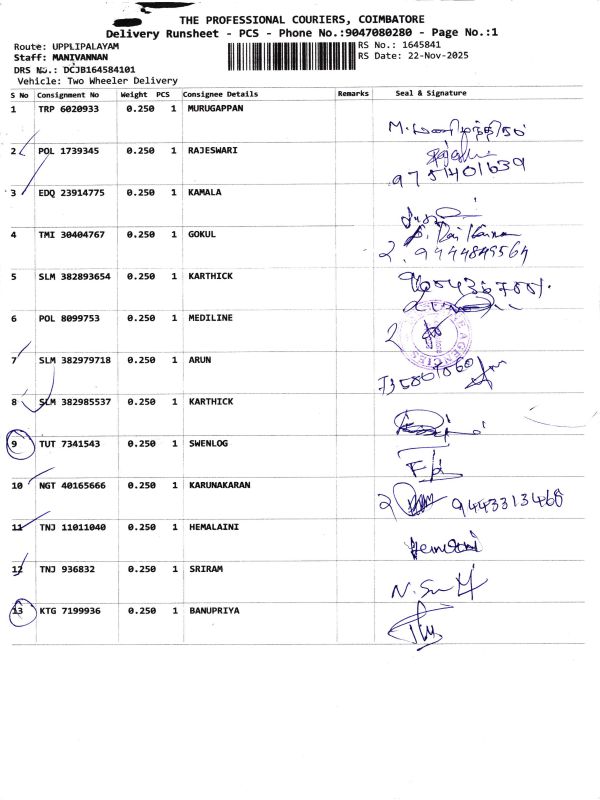 THE PROFESSIONAL COURIERS, COIMBATORE
Delivery Runsheet - PCS - Phone No.:9047080280 - Page No.:1
Route: UPPLIPALAYAM
RS No.: 1645841
Staff: MANIVANNAN
RS Date: 22-Nov-2025
DRS No.: DCJB164584101
Vehicle: Two Wheeler Delivery
S No Consignment No Weight PCS Consignee Details Remarks Seal & Signature
1 TRP 6020933 0.250 1 MURUGAPPAN
2 POL 1739345 0.250 1 RAJESWARI
9751401639
3 EDQ 23914775 0.250 1 KAMALA
4 TMI 30404767 0.250 1 GOKUL
2. 9444849564
5 SLM 382893654 0.250 1 KARTHICK
6 POL 8099753 0.250 1 MEDILINE
2
AGENCIES
7 SLM 382979718 0.250 1 ARUN
8 SLM 382985537 0.250 1 KARTHICK
9 TUT 7341543 0.250 1 SWENLOG
10 NGT 40165666 0.250 1 KARUNAKARAN
2 9443313468
11 TNJ 11011040 0.250 1 HEMALAINI
12 TNJ 936832 0.250 1 SRIRAM
13 KTG 7199936 0.250 1 BANUPRIYA